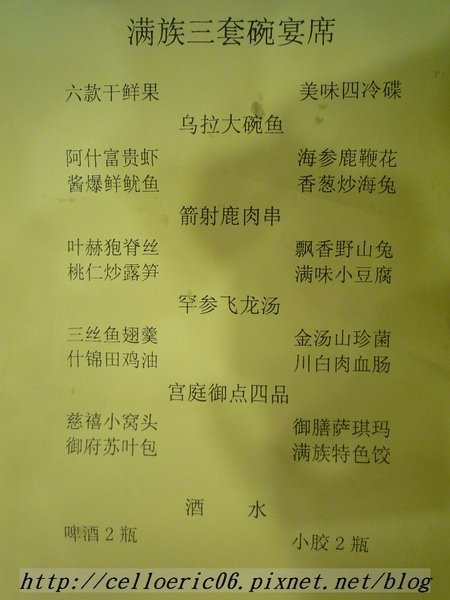 满族三套碗宴席
六款干鲜果 美味四冷碟
乌拉大碗鱼
阿什富贵虾 海参鹿鞭花
酱爆鲜鱿鱼 香葱炒海兔
箭射鹿肉串
叶赫狍脊丝 飘香野山兔
桃仁炒露笋 满味小豆腐
罕参飞龙汤
三丝鱼翅羹 金汤山珍菌
什锦田鸡油 川白肉血肠
宫庭御点四品
慈禧小窝头 御膳萨琪玛
御府苏叶包 满族特色饺
酒 水
啤酒2瓶 小胶2瓶
http://celloeric06.pixnet.net/blog